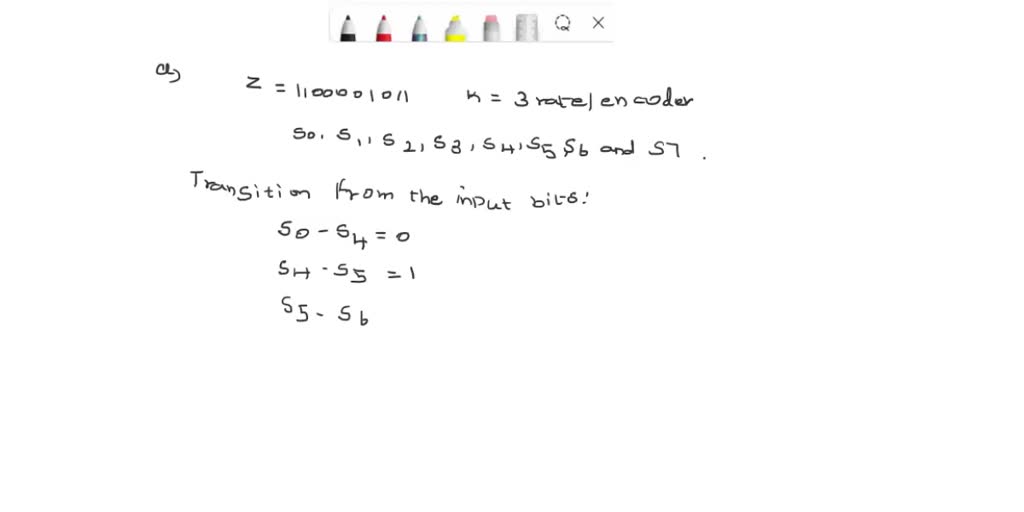 a)
Z = 1100001011 K = 3 rate/encoder
S0, S1, S2, S3, S4, S5 S6 and S7.
Transition from the input bits:
S0 - S4 = 0
S4 - S5 = 1
S5 - S6